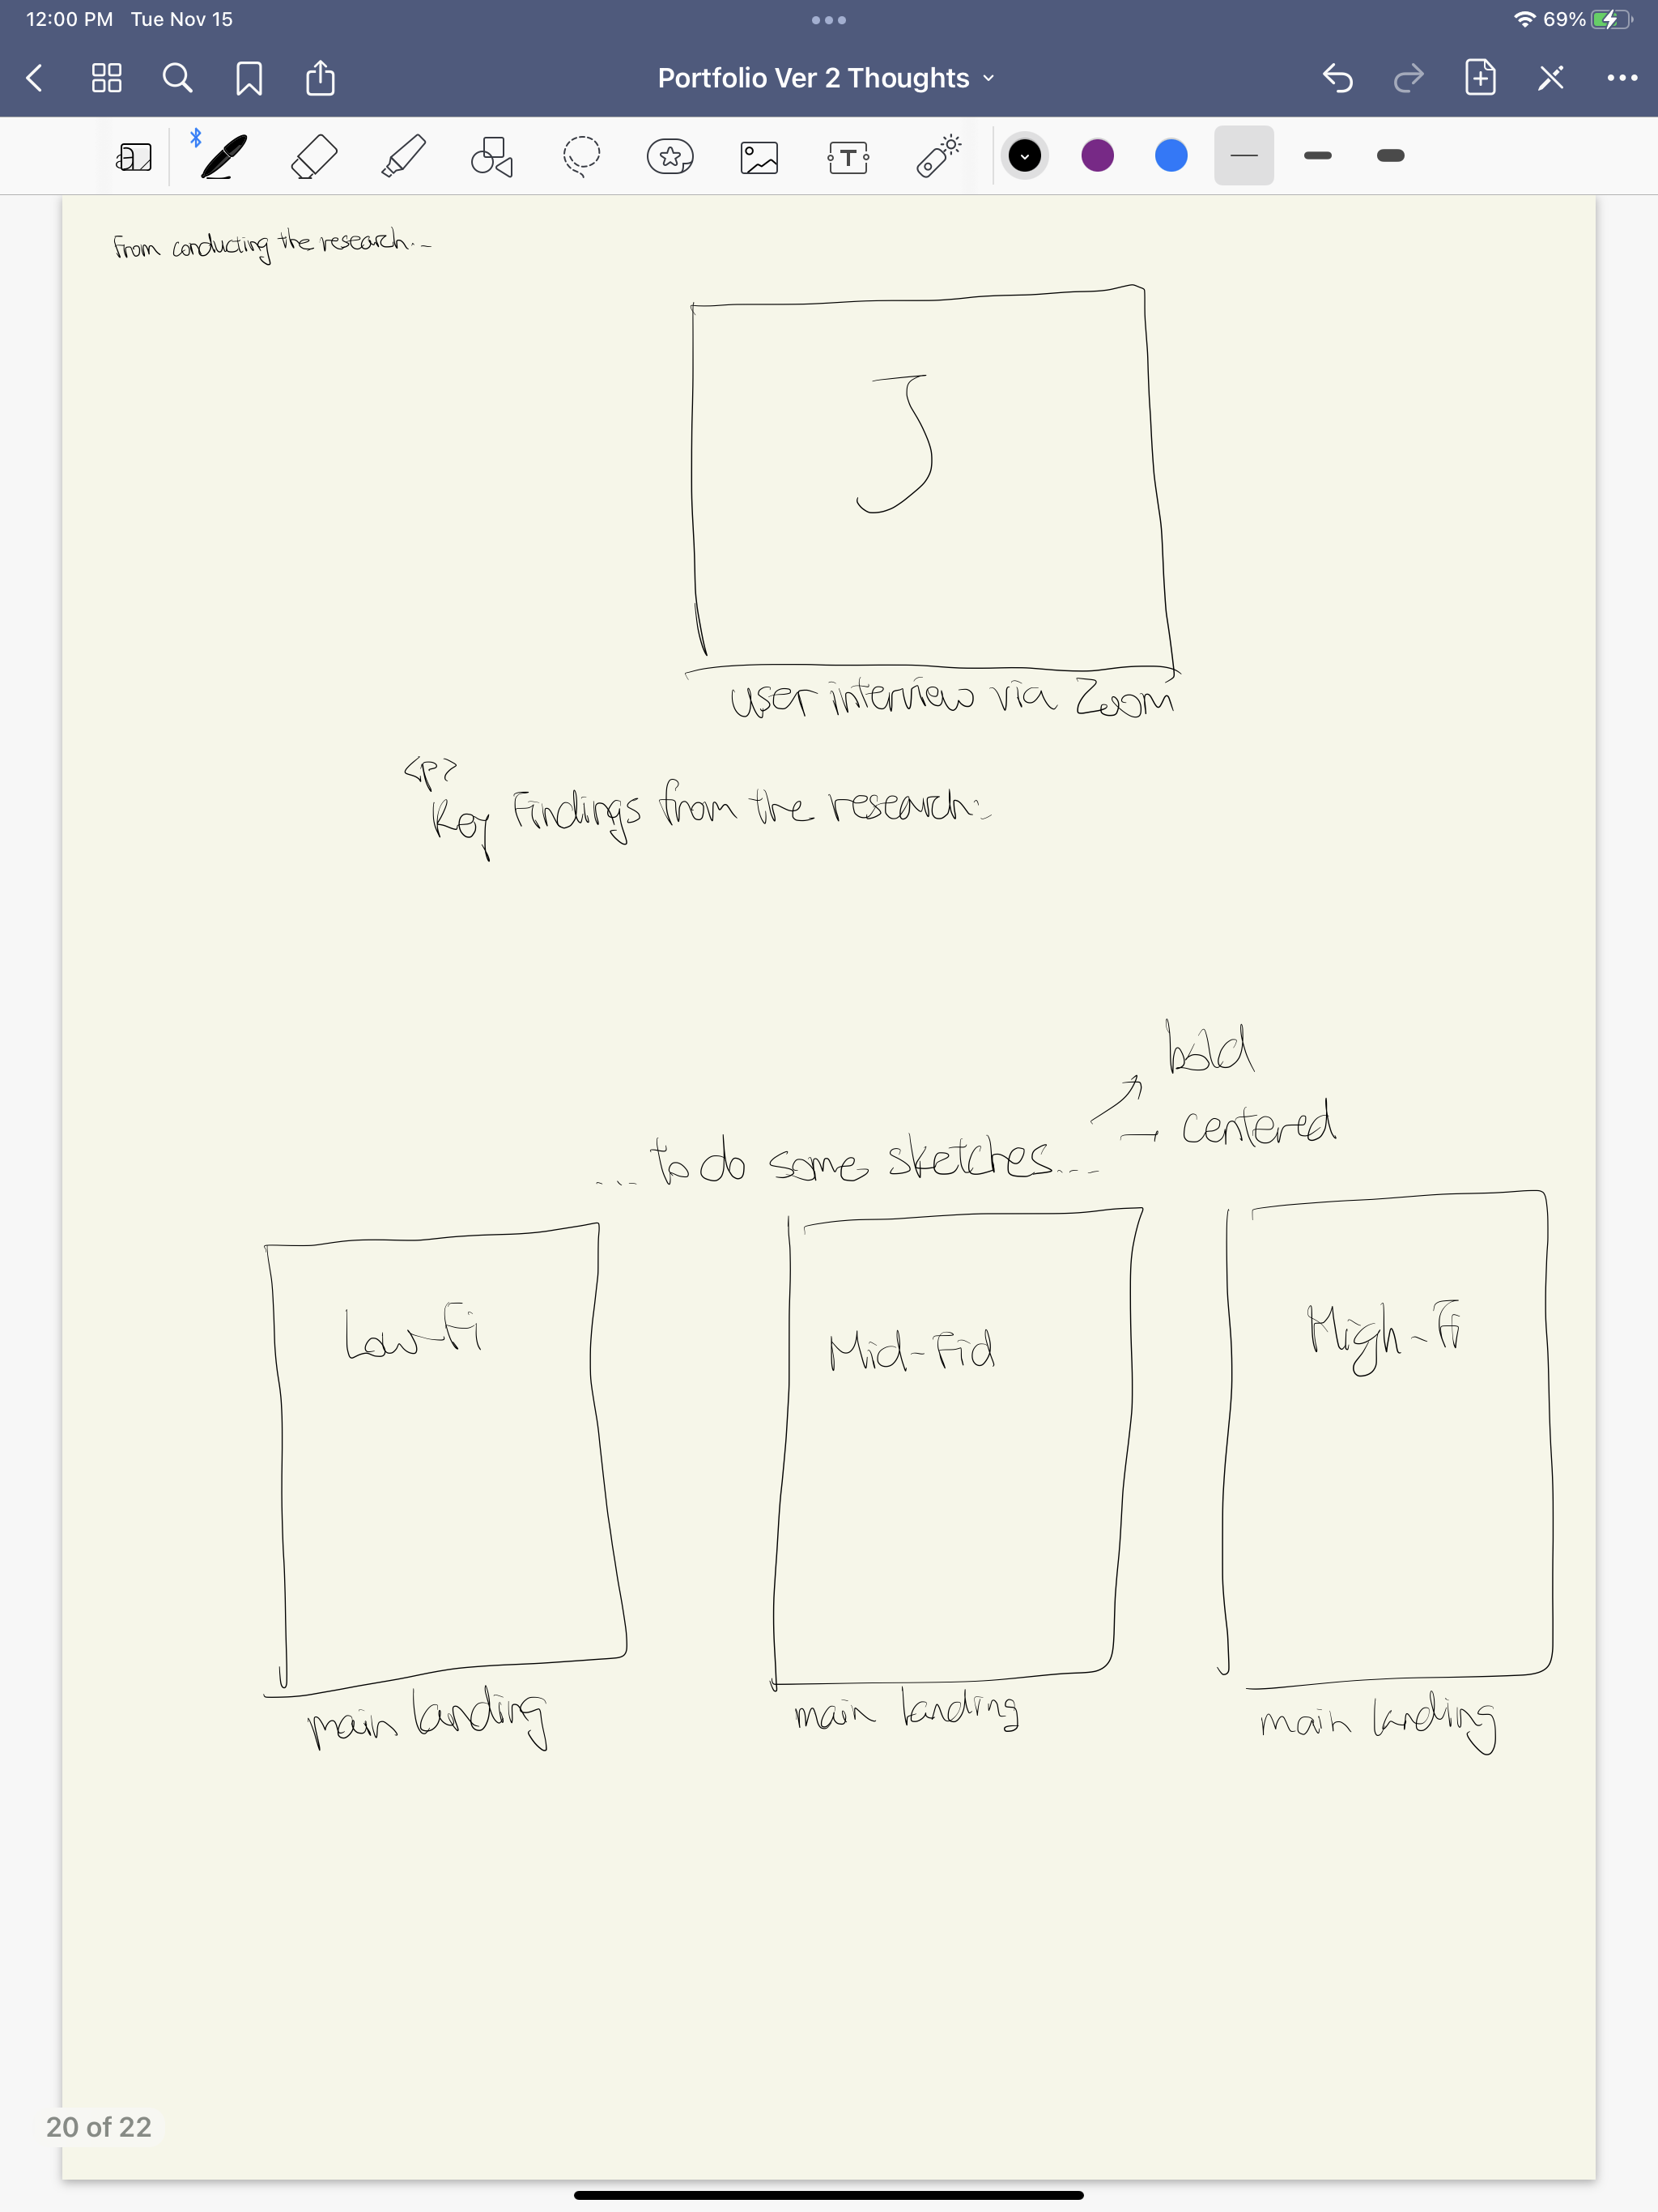 12:00 PM Tue Nov 15
69%
Portfolio Ver 2 Thoughts
From conducting the research...
J
user interview via Zoom
<p>
Key Findings from the research:
bold
centered
... to do some sketches....
Low-Fi
Mid-Fid
High-Fi
main landing
main landing
main landing
20 of 22